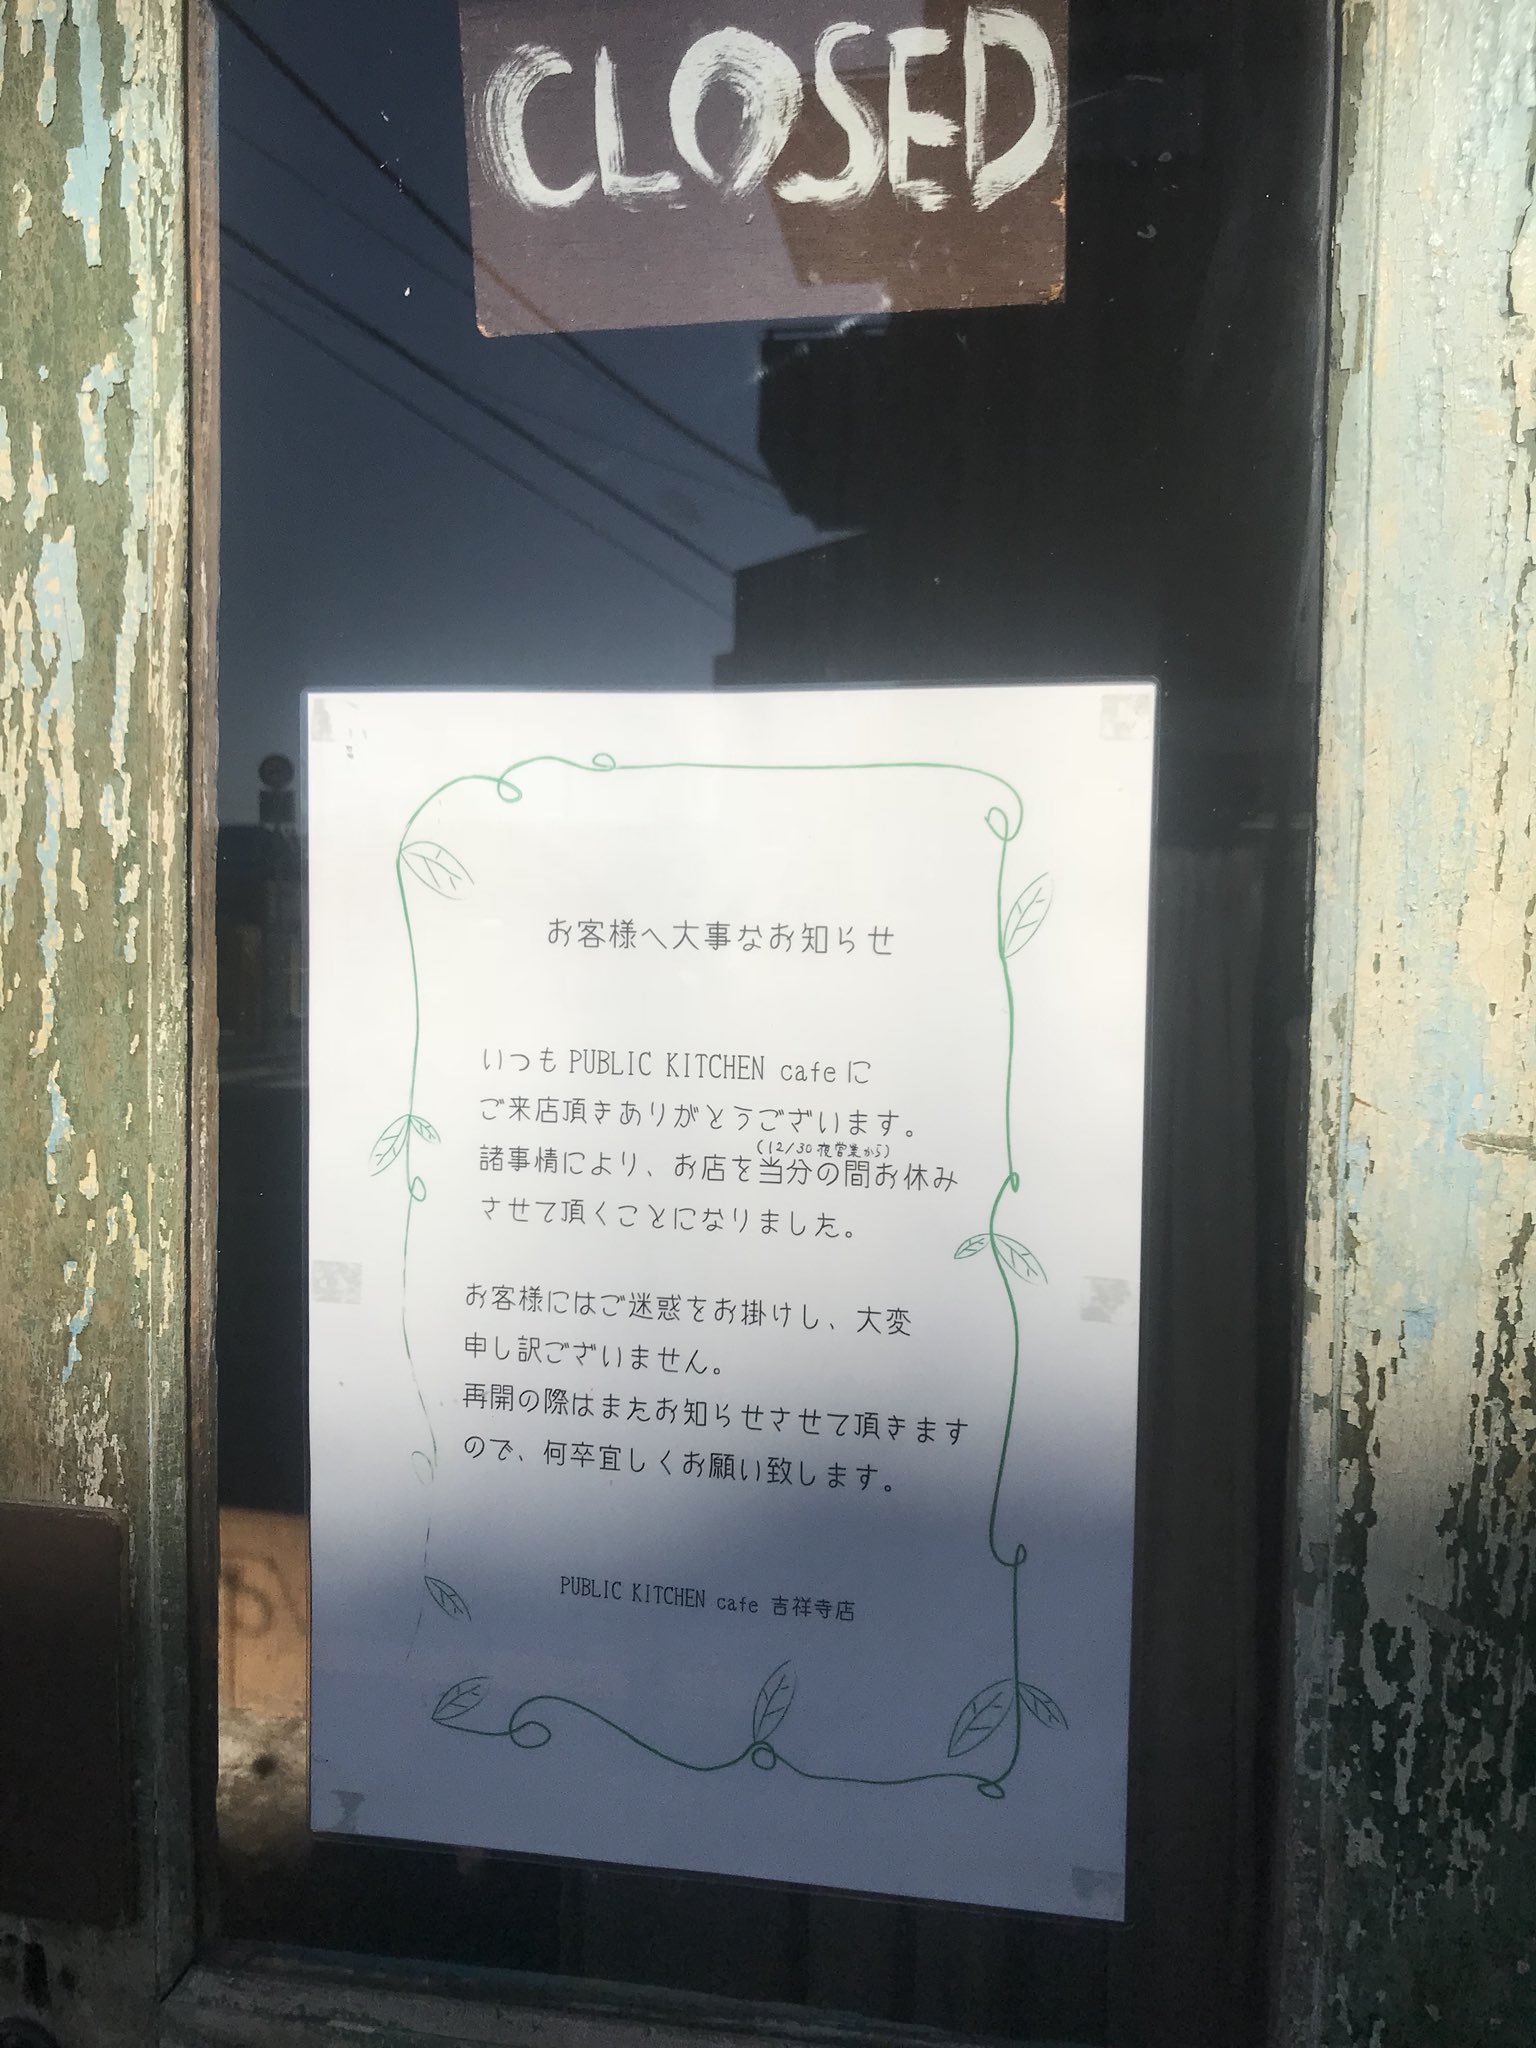 CLOSED
お客様へ大事なお知らせ
いつも PUBLIC KITCHEN cafe に
ご来店頂きありがとうございます。
(12/30夜営業から)
諸事情により、お店を当分の間お休み
させて頂くことになりました。
お客様にはご迷惑をお掛けし、大変
申し訳ございません。
再開の際はまたお知らせさせて頂きます
ので、何卒宜しくお願い致します。
PUBLIC KITCHEN cafe 吉祥寺店